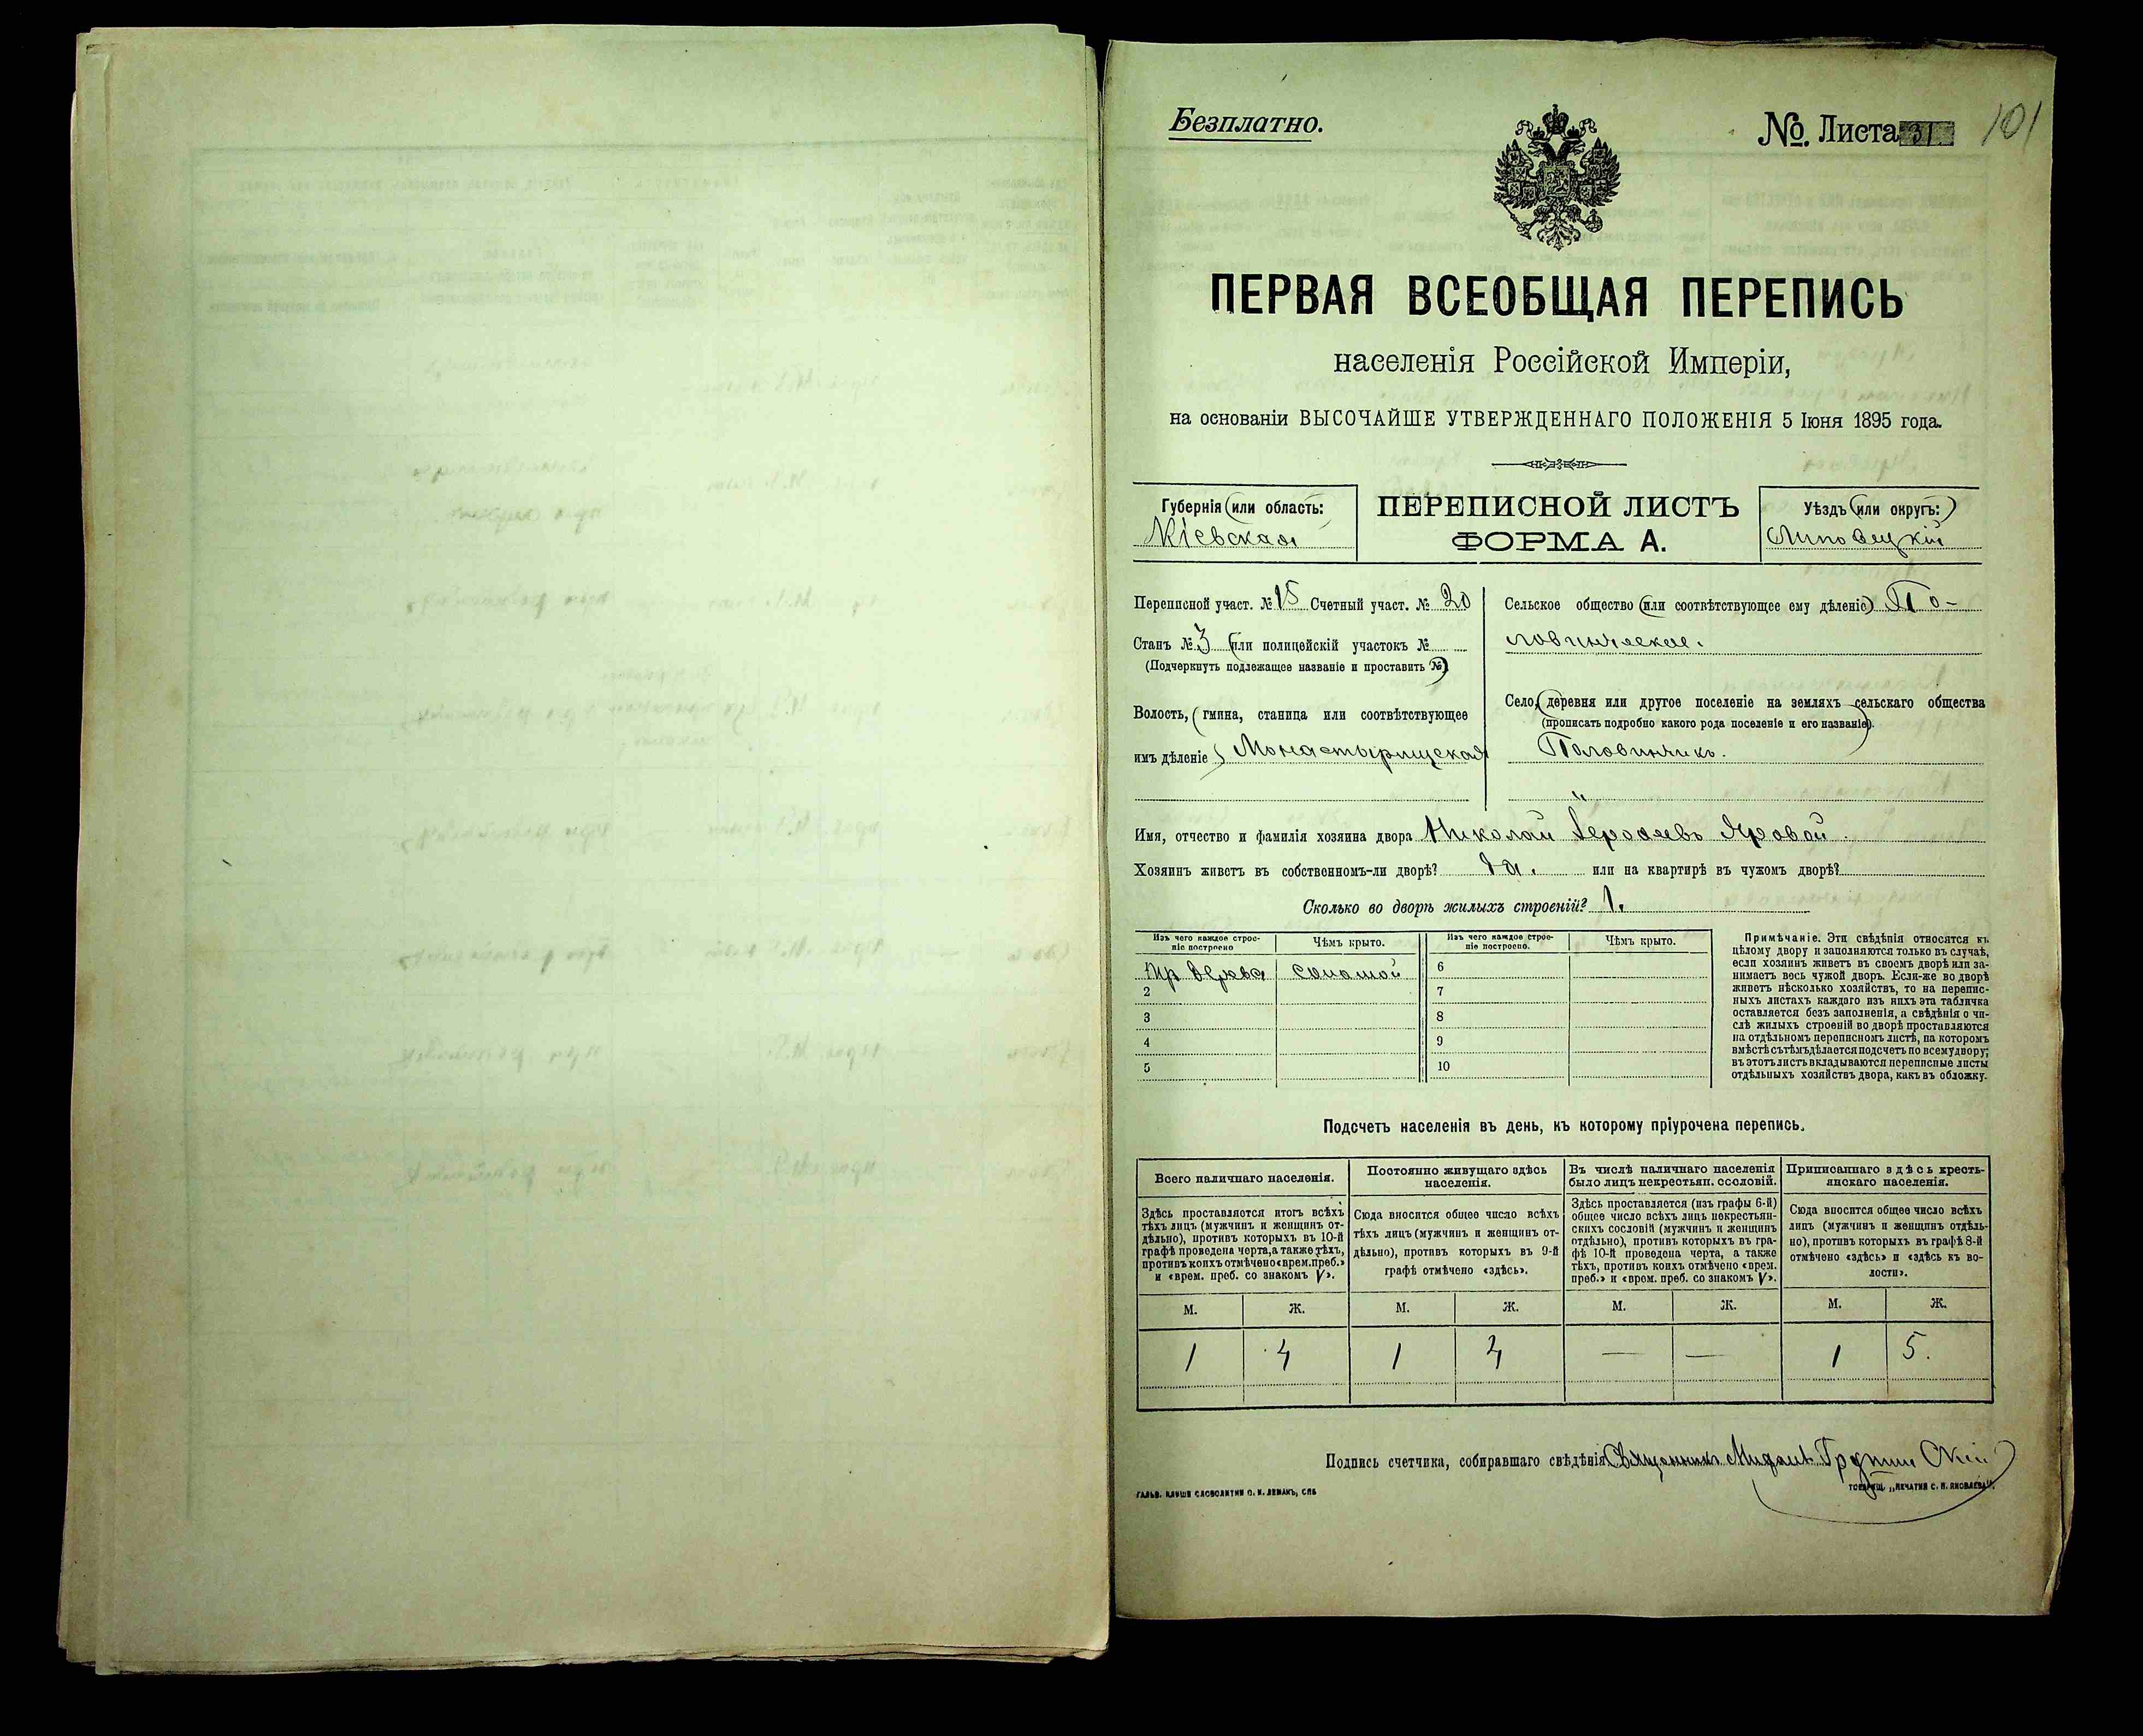 Безплатно.
№. Листа 31
101
ПЕРВАЯ ВСЕОБЩАЯ ПЕРЕПИСЬ
населенія Россійской Имперіи,
на основаніи ВЫСОЧАЙШЕ УТВЕРЖДЕННАГО ПОЛОЖЕНІЯ 5 Іюня 1895 года.
Губернія (или область:
Кіевская
ПЕРЕПИСНОЙ ЛИСТЪ
ФОРМА А.
Уѣздъ (или округъ:)
Липовецкій
Переписной участ. № 15 Счетный участ. № 20
Станъ № 3 (или полицейскій участокъ №
(Подчеркнуть подлежащее названіе и проставить №)
Волость, (гмина, станица или соотвѣтствующее
имъ дѣленіе) Монастырищская
Сельское общество (или соотвѣтствующее ему дѣленіе) По-
ловинчское.
Село, (деревня или другое поселеніе на земляхъ сельскаго общества
(прописать подробно какого рода поселеніе и его названіе).
Половинчикъ.
Имя, отчество и фамилія хозяина двора Николай Яровой
Хозяинъ живетъ въ собственномъ-ли дворѣ? да. или на квартирѣ въ чужомъ дворѣ?
Сколько во дворѣ жилыхъ строеній? 1.
Изъ чего каждое строе-
ніе построено
Чѣмъ крыто.
Изъ чего каждое строе-
ніе построено.
Чѣмъ крыто.
дерева соломой
2
3
4
5
6
7
8
9
10
Примѣчаніе. Эти свѣдѣнія относятся къ
цѣлому двору и заполняются только въ случаѣ,
если хозяинъ живетъ въ своемъ дворѣ или за-
нимаетъ весь чужой дворъ. Если-же во дворѣ
живетъ нѣсколько хозяйствъ, то на перепис-
ныхъ листахъ каждаго изъ нихъ эта табличка
оставляется безъ заполненія, а свѣдѣнія о чи-
слѣ жилыхъ строеній во дворѣ проставляются
на отдѣльномъ переписномъ листѣ, на которомъ
вмѣстѣ съ тѣмъ дѣлается подсчетъ по всему двору;
въ этотъ листъ вкладываются переписные листы
отдѣльныхъ хозяйствъ двора, какъ въ обложку.
Подсчетъ населенія въ день, къ которому пріурочена перепись.
Всего наличнаго населенія.
Здѣсь проставляется итогъ всѣхъ
тѣхъ лицъ (мужчинъ и женщинъ от-
дѣльно), противъ которыхъ въ 10-й
графѣ проведена черта, а также тѣхъ,
противъ коихъ отмѣчено «врем. преб.»
и «врем. преб. со знакомъ V».
Постоянно живущаго здѣсь
населенія.
Сюда вносится общее число всѣхъ
тѣхъ лицъ (мужчинъ и женщинъ от-
дѣльно), противъ которыхъ въ 9-й
графѣ отмѣчено «здѣсь».
Въ числѣ наличнаго населенія
было лицъ некрестьян. сословій.
Здѣсь проставляется (изъ графы 6-й)
общее число всѣхъ лицъ некрестьян-
скихъ сословій (мужчинъ и женщинъ
отдѣльно), противъ которыхъ въ гра-
фѣ 10-й проведена черта, а также
тѣхъ, противъ коихъ отмѣчено «врем.
преб.» и «врем. преб. со знакомъ V».
Приписаннаго здѣсь кресть-
янскаго населенія.
Сюда вносится общее число всѣхъ
лицъ (мужчинъ и женщинъ отдѣль-
но), противъ которыхъ въ графѣ 8-й
отмѣчено «здѣсь» и «здѣсь къ во-
лости».
М. Ж. М. Ж. М. Ж. М. Ж.
1 4 1 4 — — 1 5.
Подпись счетчика, собиравшаго свѣдѣнія Священникъ
ГАЛЬВ. КЛИШЕ СЛОВОЛИТНИ О. И. ЛЕМАНЪ, СПБ
ТОВАРИЩ. „ПЕЧАТНЯ С. П. ЯКОВЛЕВА".